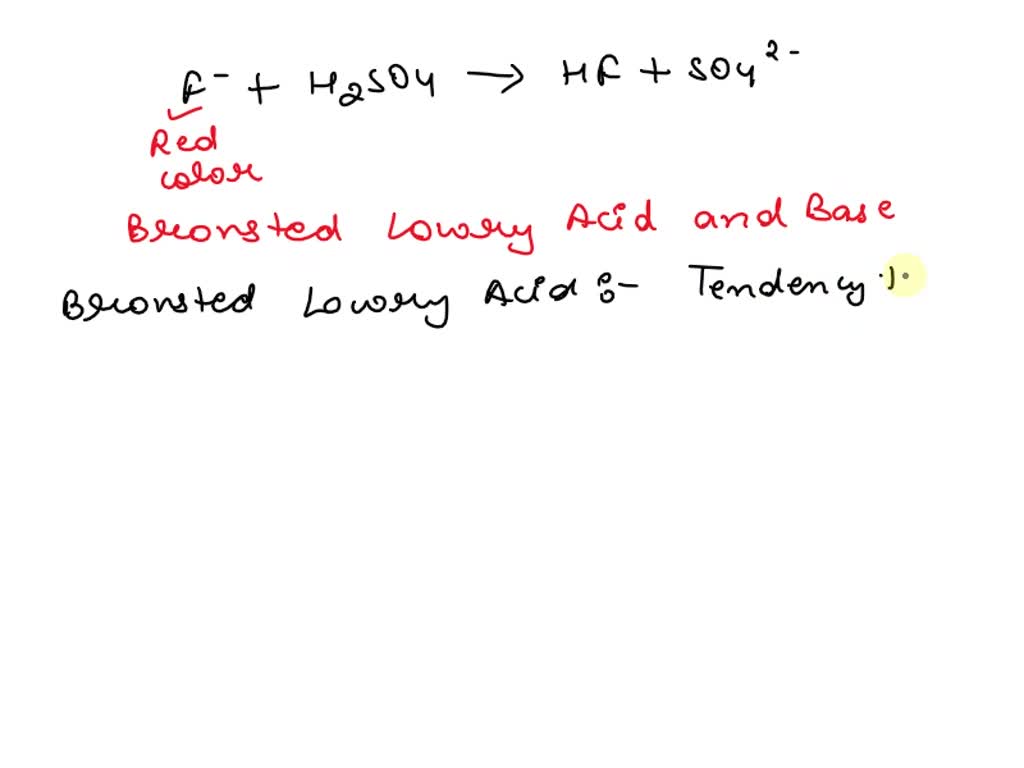 F⁻ + H₂SO₄ → HF + SO₄²⁻
Red
color
Bronsted Lowry Acid and Base
Bronsted Lowry Acid :- Tendency